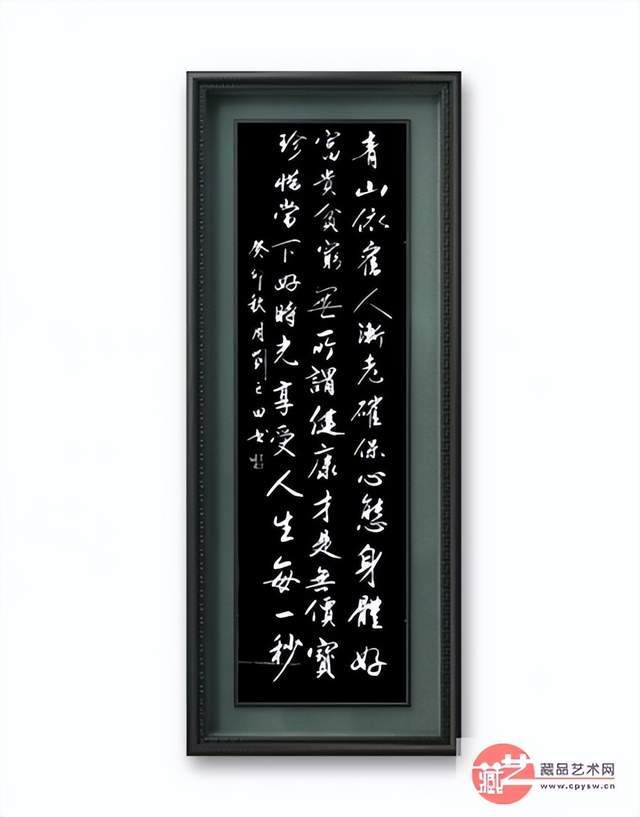 青山依舊人漸老確保心態身體好
富貴貧窮無所謂健康才是無價寶
珍惜當下好時光享受人生每一秒
癸卯秋月劉之田书
藏艺
藏品艺术网
www.cpysw.cn